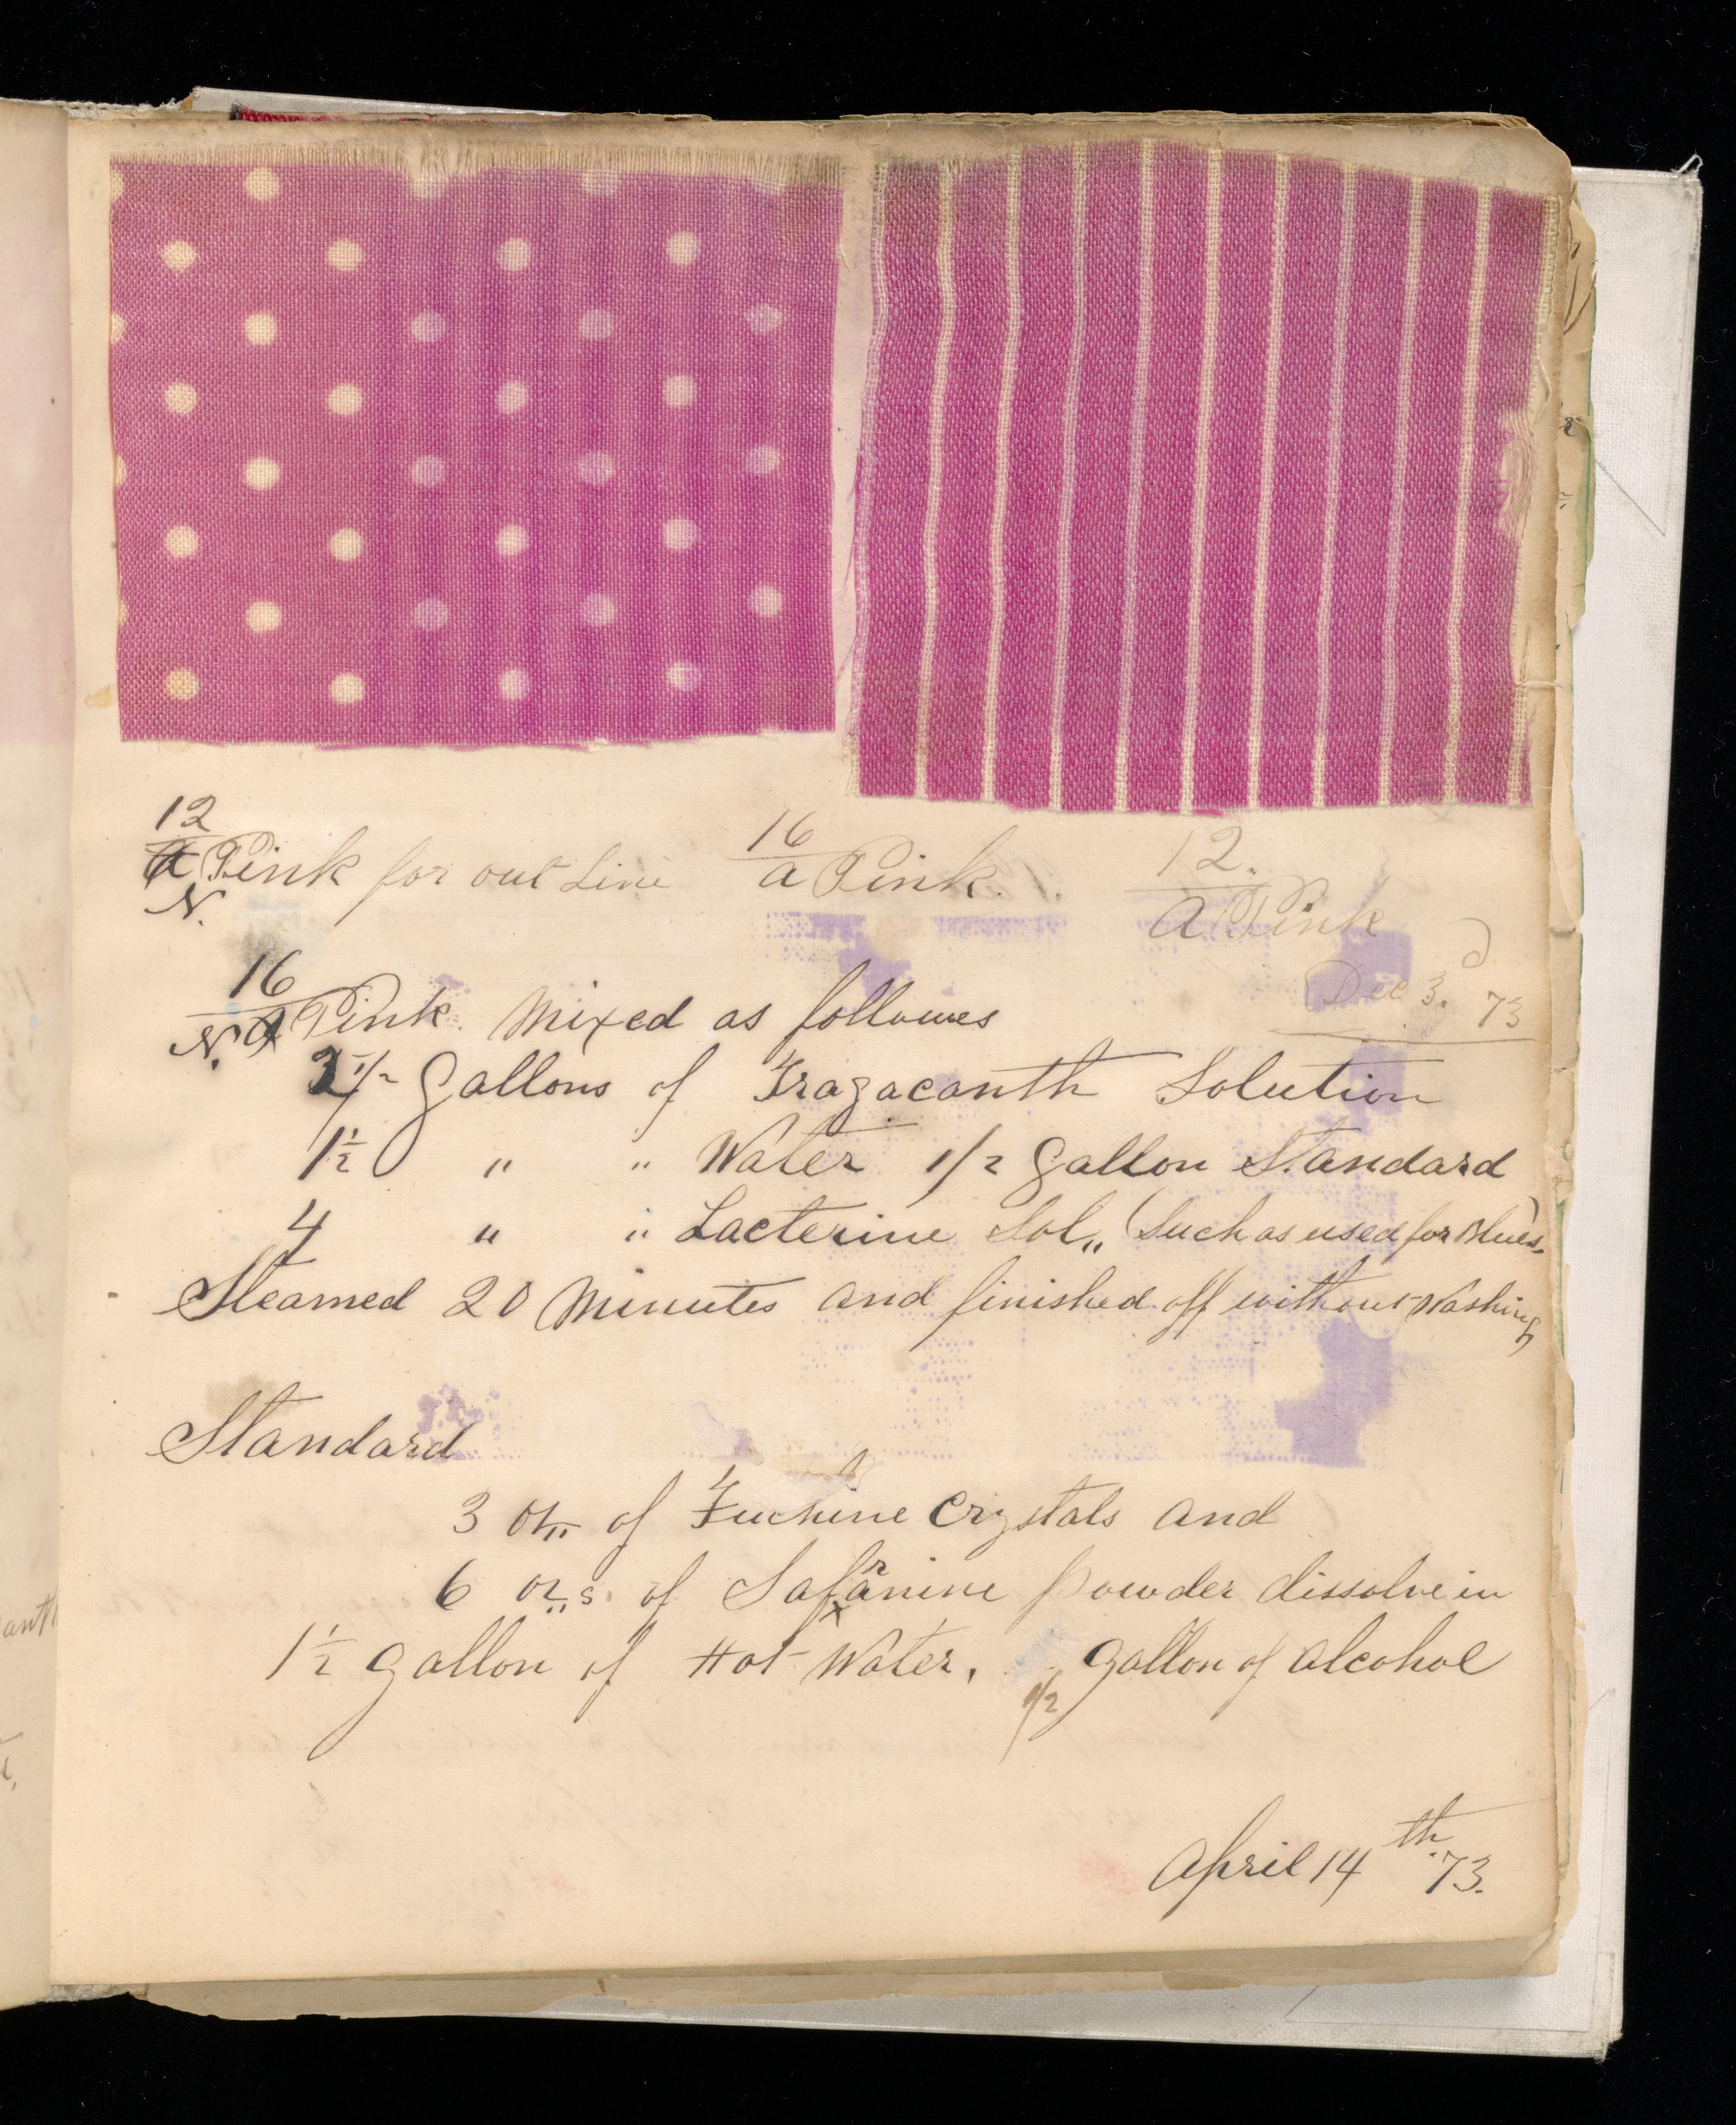 12
a Pink for out Line
N.
16
a Pink.
12.
a Pink
Dec 3.d 73
16
N. a Pink. Mixed as follows
2 1/2 Gallons of Tragacanth Solution
1 1/2 " " Water 1/2 Gallon Standard
4 " " Lacterine Sol,, (Such as used for Blues)
Steamed 20 Minutes and finished off without Washing
Standard
3 oz,, of Fuchine Crystals and
6 oz,,s. of Safranine powder dissolve in
1 1/2 gallon of Hot Water. 1/2 gallon of alcohol
April 14th 73.